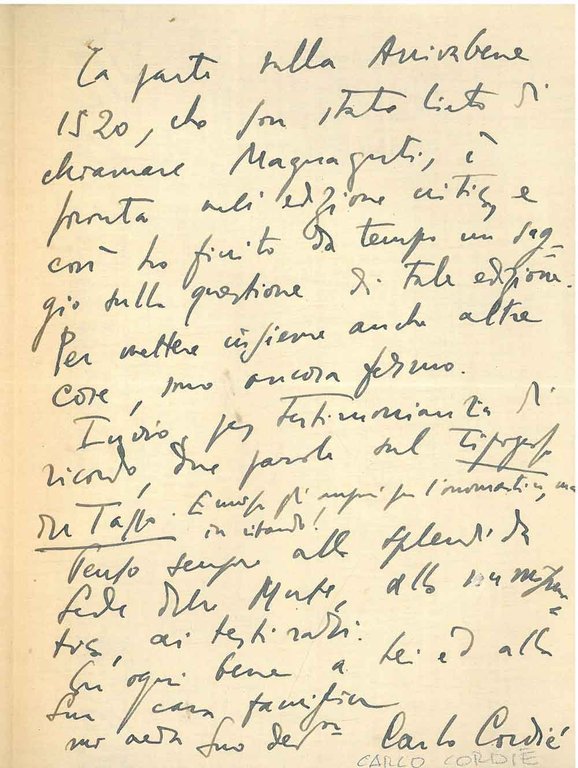 La parte sulla Arrivabene
1520, che son stato lieto di
chiamare Magnaguti, è
pronta nell'edizione critica, e
così ho finito da tempo un sag-
gio sulla questione di tale edizione.
Per mettere insieme anche altre
cose, sono ancora fermo.
Invio, per testimonianza di
ricordo, due parole sul Tipografo
del Tasso. E miei gli auguri per l'onomastico, ma
in ritardo!
Penso sempre alla splendida
Sede delle Morte, alla numisma-
tica, ai testi rari.
Con ogni bene a Lei ed alla
Sua cara famiglia
mi creda Suo dev.mo Carlo Cordié
CARLO CORDIÈ